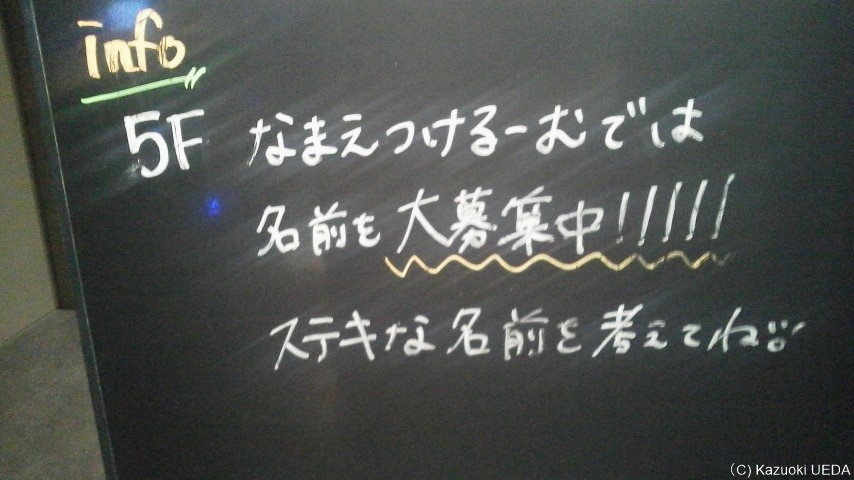 info
5F なまえつけるーむでは
名前を大募集中!!!!!
ステキな名前を考えてね
(C) Kazuoki UEDA